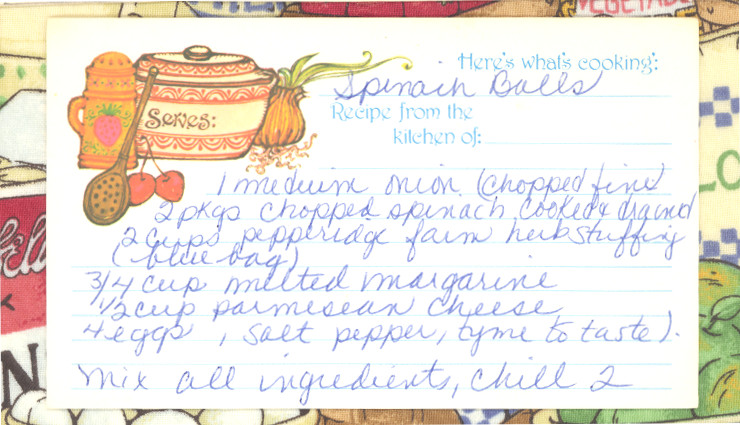 VEGETABLE
Here's what's cooking:
Spinach Balls
Serves:
Recipe from the
kitchen of:
1 medium onion (chopped fine)
2 pkgs chopped spinach cooked & drained
2 cups pepperidge farm herb stuffing
(blue bag)
3/4 cup melted margarine
1/2 cup parmesean cheese
4 eggs, salt pepper, tyme to taste).
Mix all ingredients, chill 2